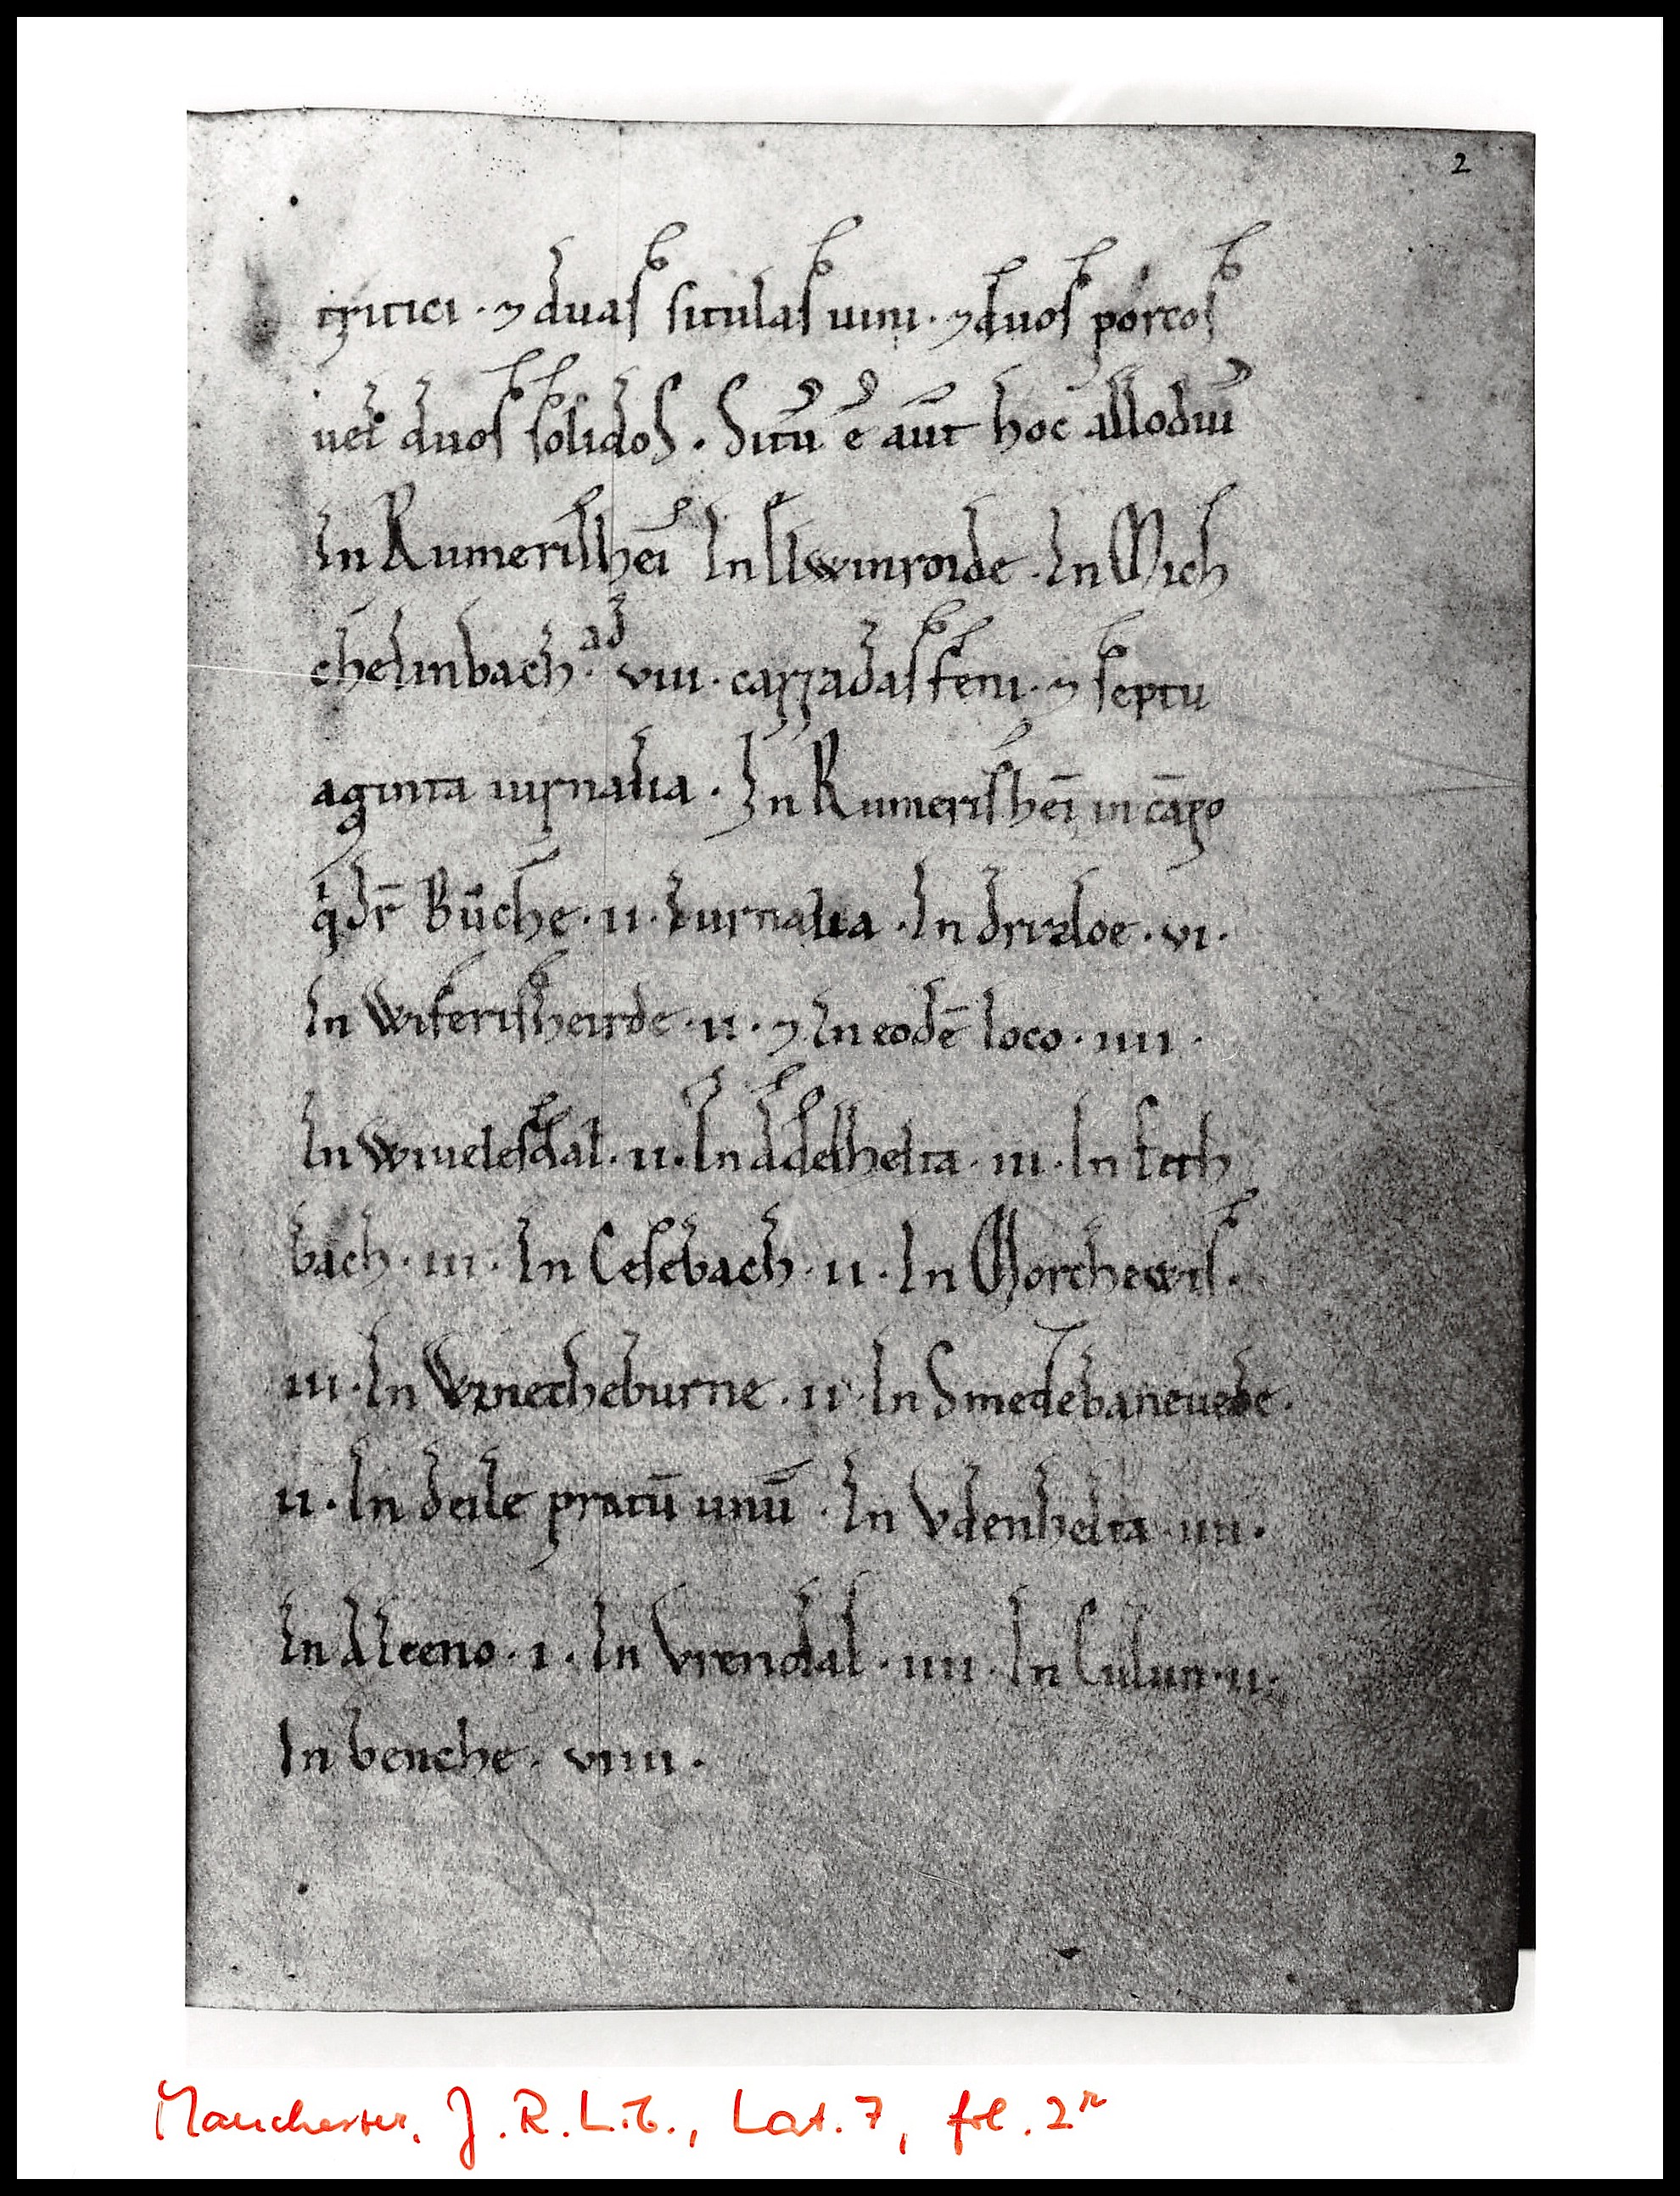 2
tritici · ⁊ duas situlas uini · ⁊ duos porcos
uel duos solidos · Sitū ē aūt hoc allodiū
In Rumerisheī In Ilwinroide · In Mich
chelinbach · ad viii · carradas feni · ⁊ septu
aginta iurnalia · In Rumerisheī in cāpo
q̇ dr̄ Bůche · ii · iurnalia · In drizloe · vi ·
In Wiferisheirde · ii · ⁊ In eodē loco · iiii ·
In Wiuelesdal · ii · In Adelhelta · iii · In
bach · iii · In Cesebach · ii · In Morchewis ·
iii · In Winiecheburne · ii · In Smedebaneuede ·
ii · In deile pratū unū · In Vdenhelta · iiii ·
In Alteno · i · In Vrendal · iiii · In Culun · ii ·
In benche · viiii ·
Manchester, J. R. Lib., Lat. 7, fol. 2r